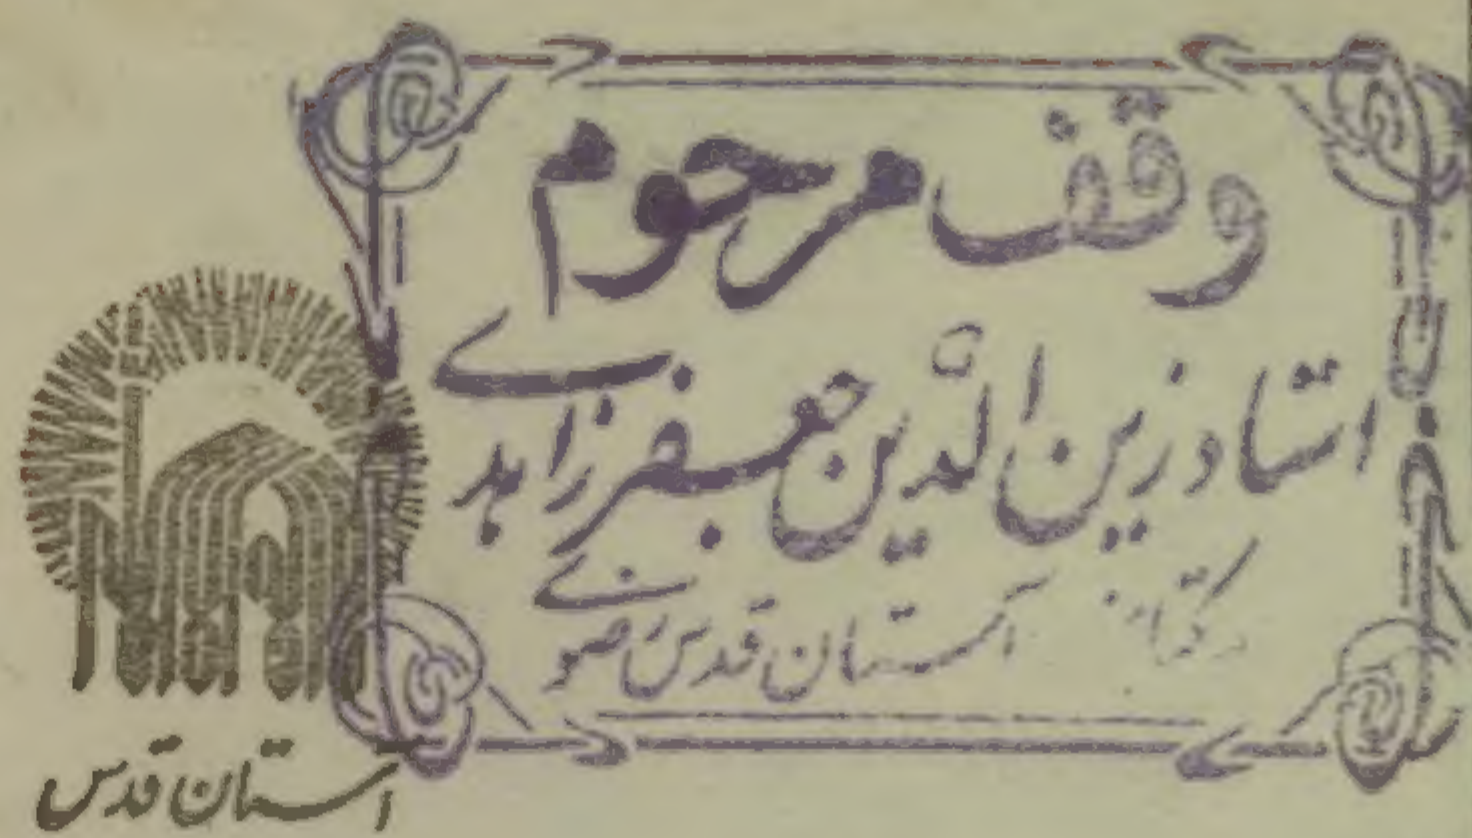 وقف مرحوم
استاد زین الدین جعفر زاهدی
بکتابخانه آستان قدس رضوی
آستان قدس